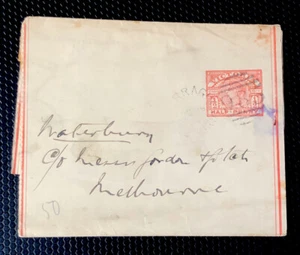 VICTORIA
HALF PENNY
Waterbury
c/o Messrs Gordon & Gotch
Melbourne
50